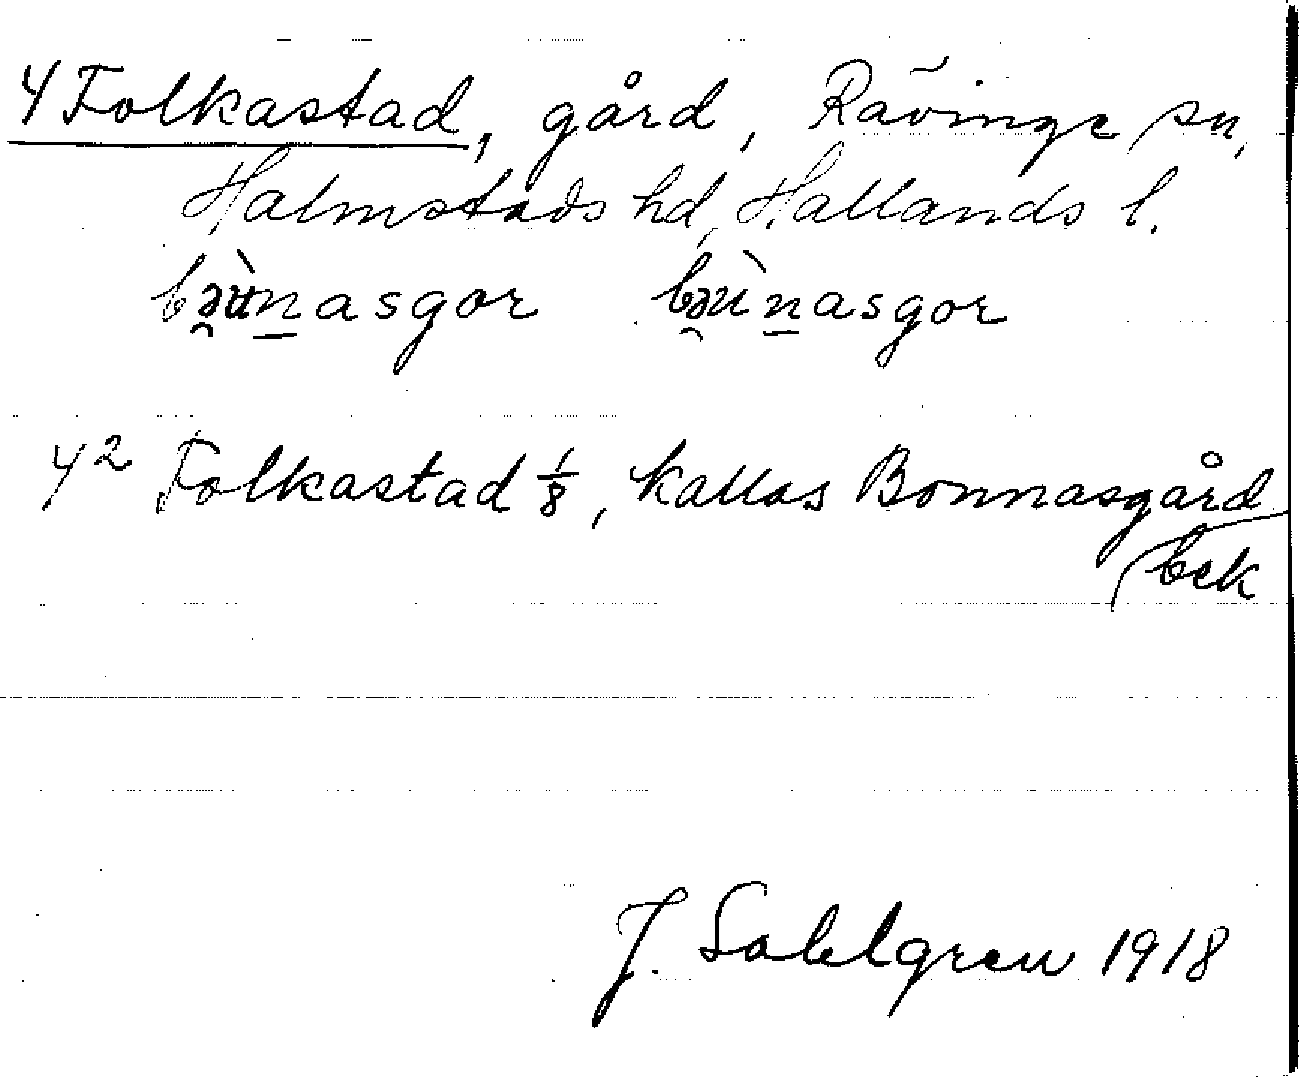 4 Folkastad, gård, Rävinge sn,
Halmstads hd, Hallands l.
bə̯ùn̲asgor bə̯ùn̲asgor
4² Folkastad ⅛, kallas Bonnasgård
bek
J. Sahlgren 1918